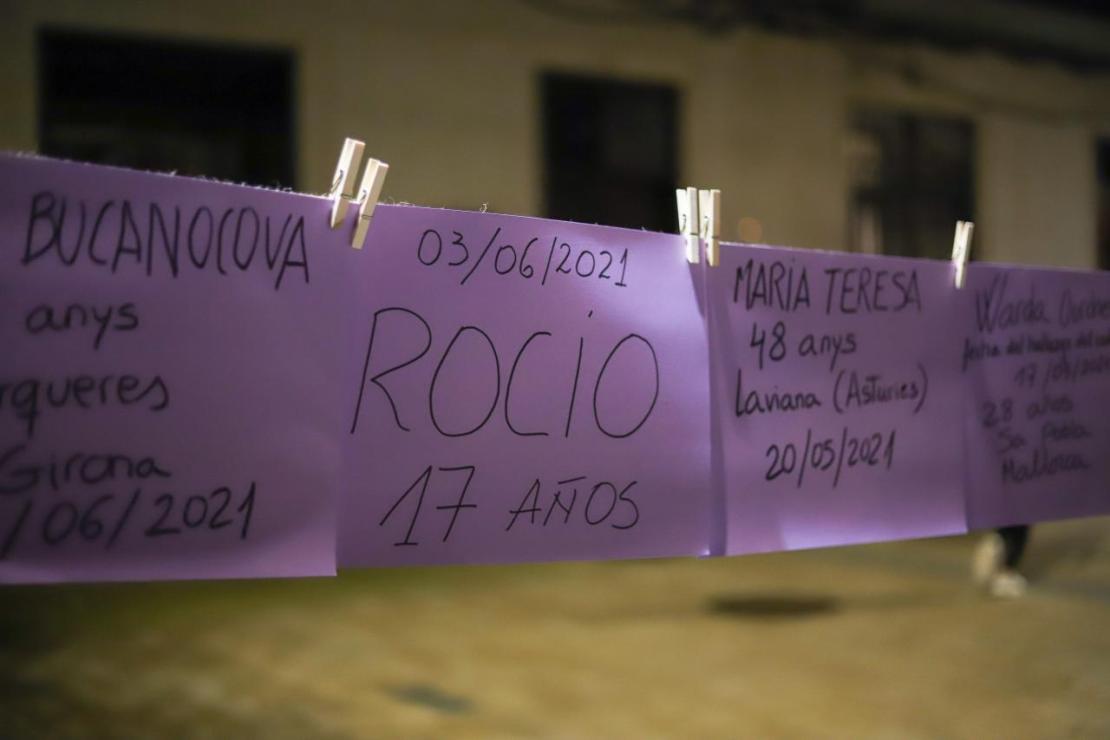 BUCANOCOVA
anys
rqueres
Girona
/06/2021
03/06/2021
ROCIO
17 AÑOS
MARÍA TERESA
48 anys
Laviana (Asturies)
20/05/2021
Warda
del hallazgo del
17/09/202
28 años
Sa Pobla
Mallorca